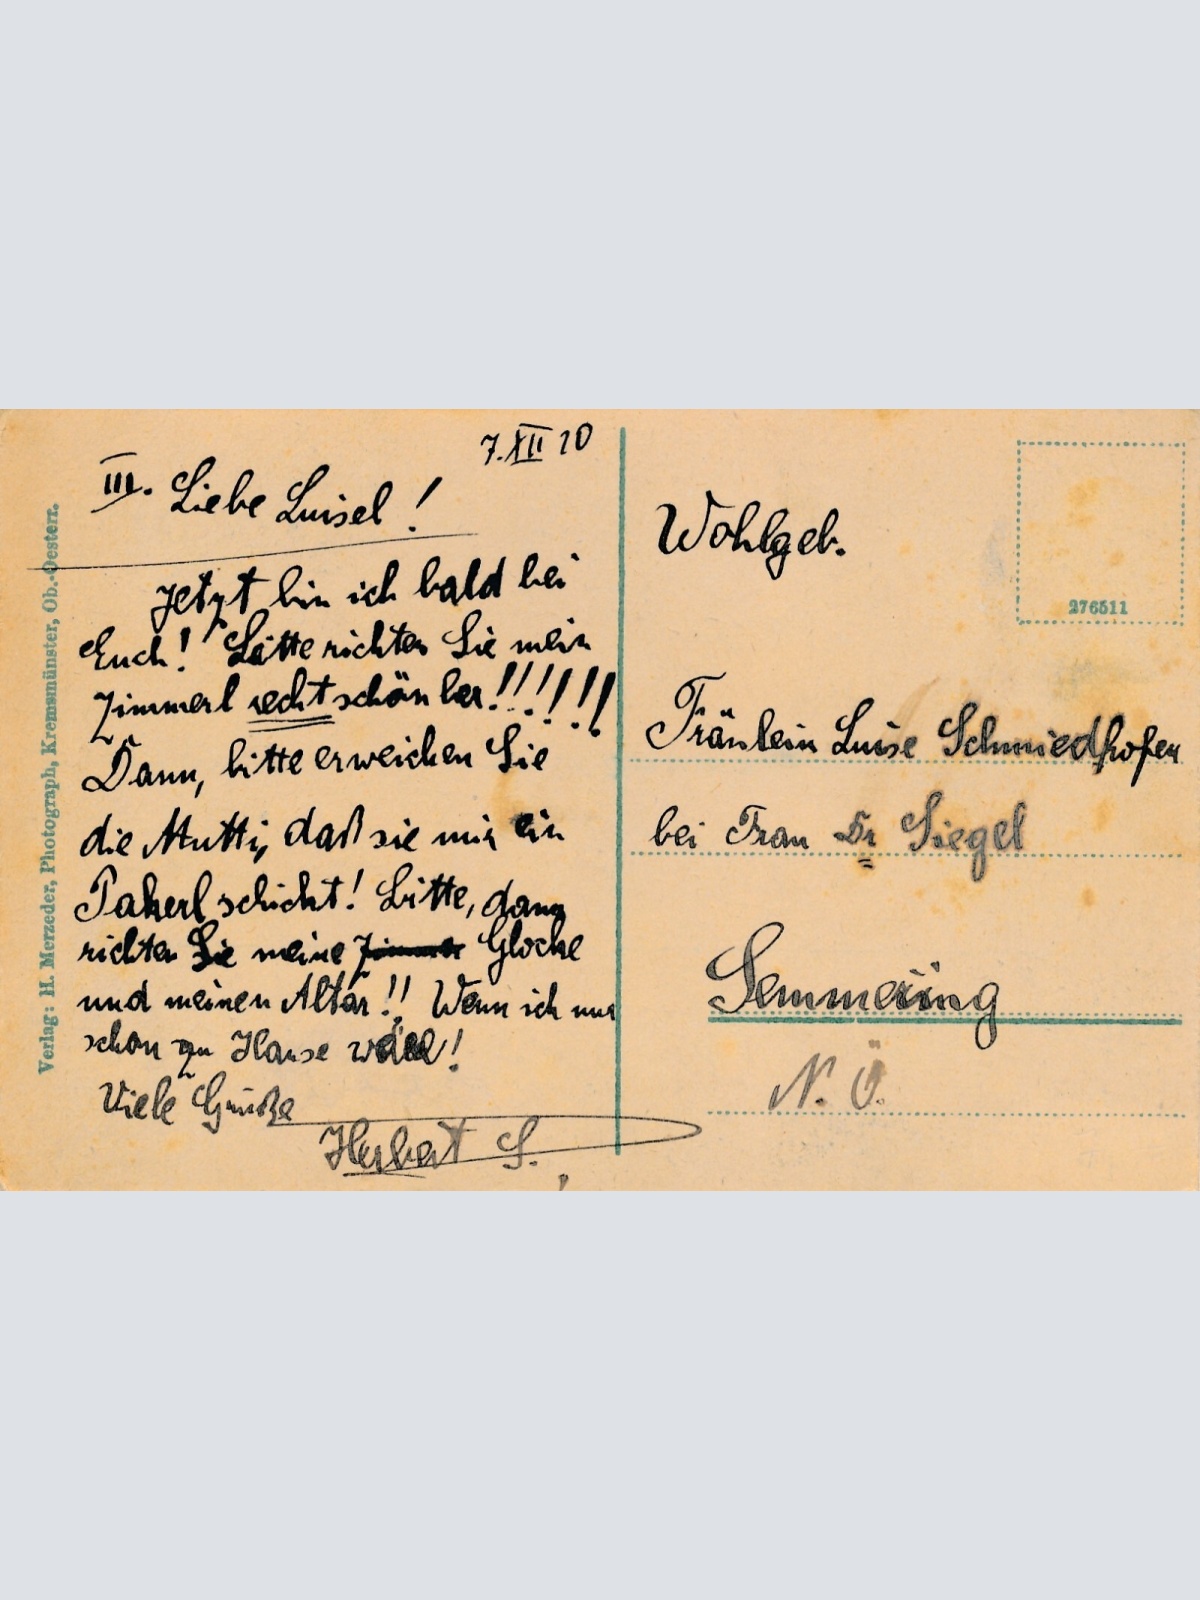 7. XII 20
III. Liebe Luisel!
Jetzt bin ich bald bei
Euch! Bitte richten Sie mein
Zimmerl recht schön her!!!!!!
Dann, bitte erweichen Sie
die Mutti, daß sie mir ein
Pakerl schickt! Bitte, dann
richten Sie meine Glocke
und meinen Altar!! Wenn ich nur
schon zu Hause wäre!
Viele Grüße
Herbert S.
Verlag: H. Merzeder, Photograph, Kremsmünster, Ob.-Oesterr.
276511
Wohlgeb.
Fräulein Luise Schmiedhofer
bei Frau Dr Siegel
Semmering
N. Ö.